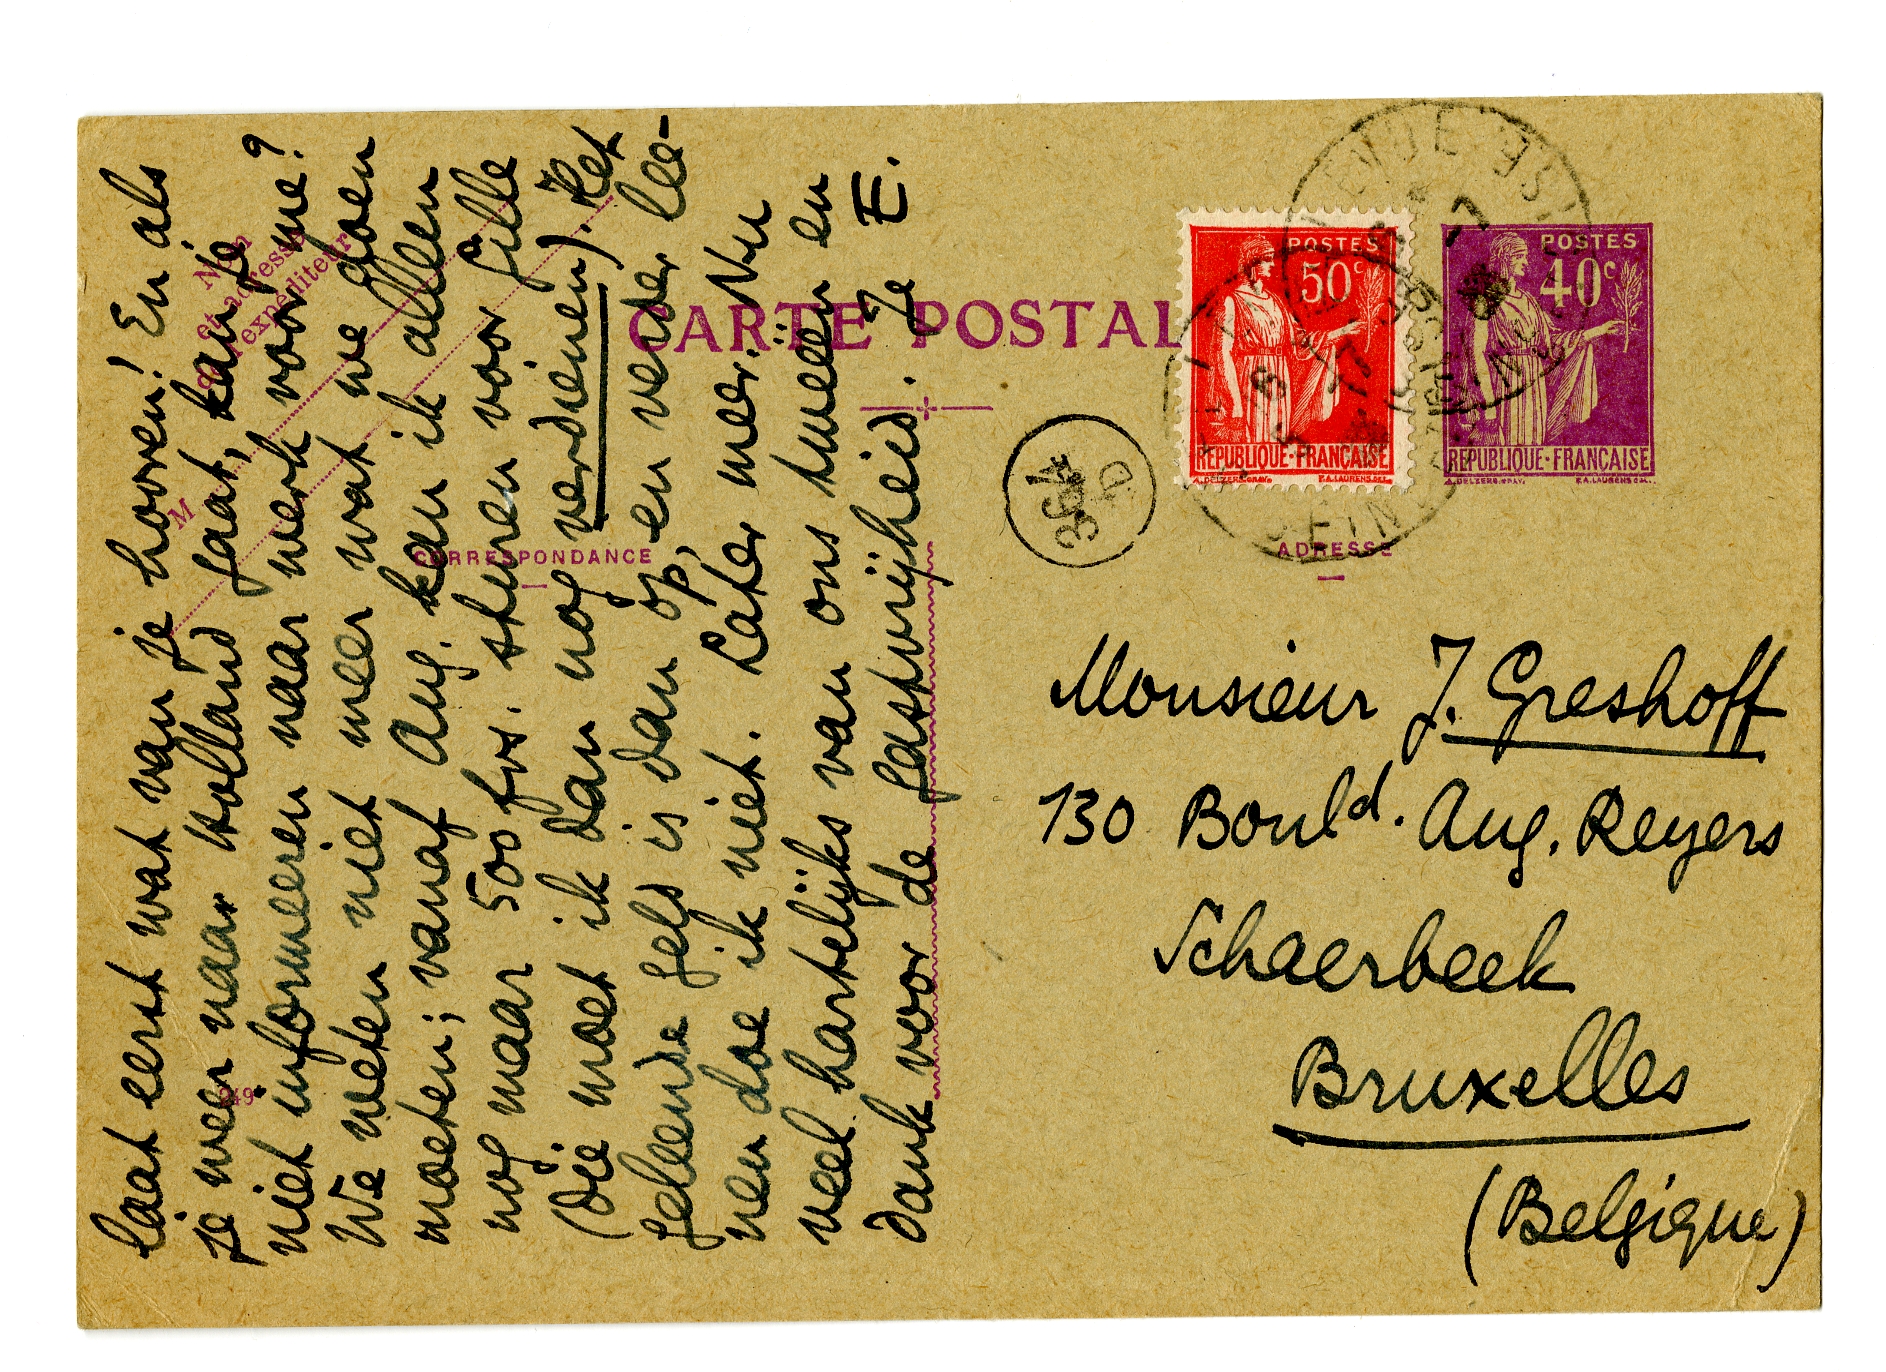 laat eerst wat van je hooren! En als
je weer naar Holland gaat, kan je
niet informeeren naar werk voor me?
We weten niet meer wat we doen
moeten; vanaf Aug. kan ik alleen
nog maar 500 frs. sturen voor Gille
(die moet ik dan nog verdienen). Het
geleende geld is dan op, en verder lee-
nen doe ik niet. Later meer. Nu
veel hartelijks van ons tweeën en
dank voor de gastvrijheid. Je E.
Nom
et adresse
de l'expéditeur
M
CARTE POSTALE
CORRESPONDANCE
ADRESSE
249
POSTES
50c
REPUBLIQUE·FRANÇAISE
POSTES
40c
REPUBLIQUE·FRANÇAISE
364
D
Monsieur J. Greshoff
130 Bould. Aug. Reyers
Schaerbeek
Bruxelles
(Belgique)